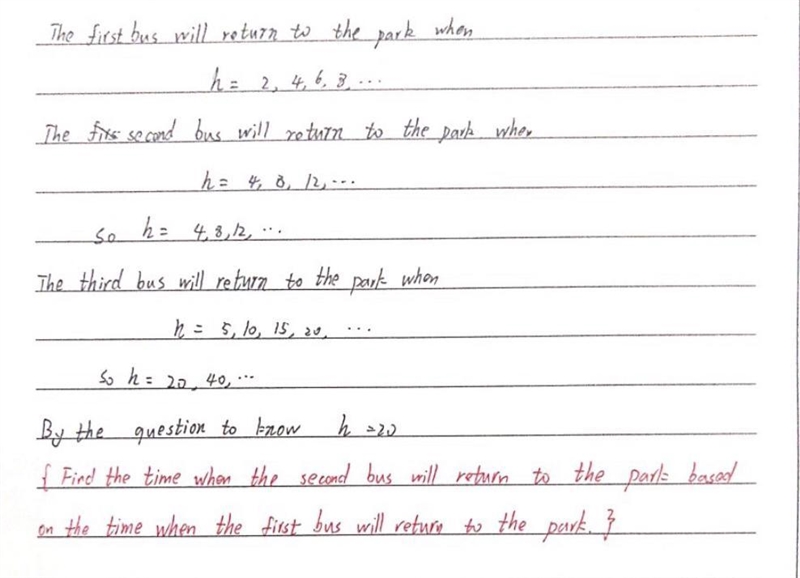 The first bus will return to the park when
h = 2, 4, 6, 8, ...
The firs second bus will return to the park when
h = 4, 8, 12, ...
so h = 4, 8, 12, ...
The third bus will return to the park when
h = 5, 10, 15, 20, ...
so h = 20, 40, ...
By the question to know h = 20
{ Find the time when the second bus will return to the park based
on the time when the first bus will return to the park. }